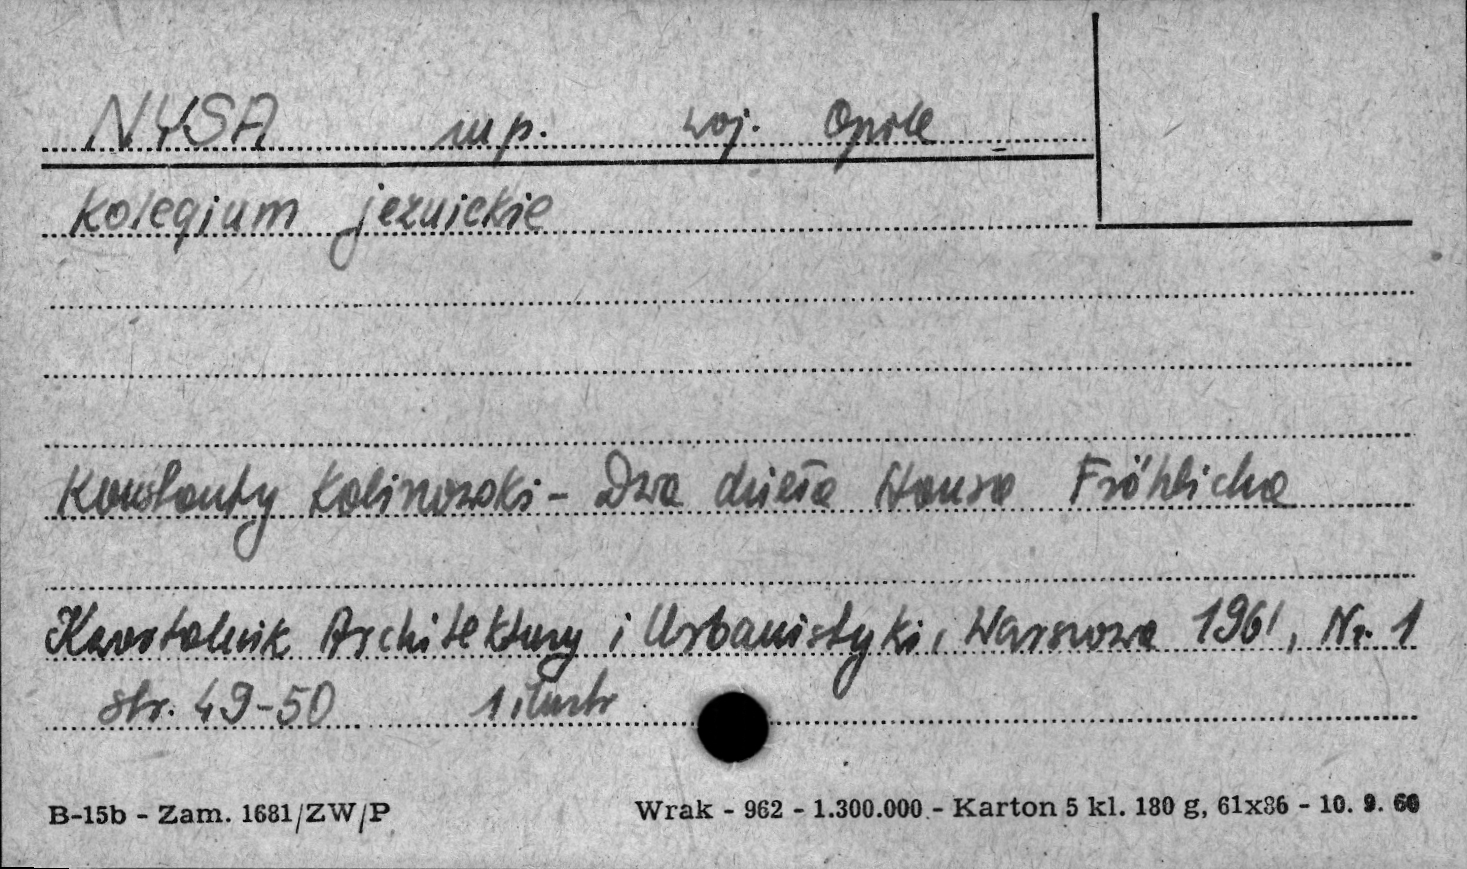 NYSA mp. woj. Opole
Kolegium jezuickie
Konstanty Kalinowski - Dwa dzieła Hansa Fröhlicha
Kwartalnik Architektury i Urbanistyki, Warszawa 1961, Nr. 1
str. 49-50 1 ilustr
B-15b - Zam. 1681/ZW/P Wrak - 962 - 1.300.000 - Karton 5 kl. 180 g, 61x86 - 10. 9. 60